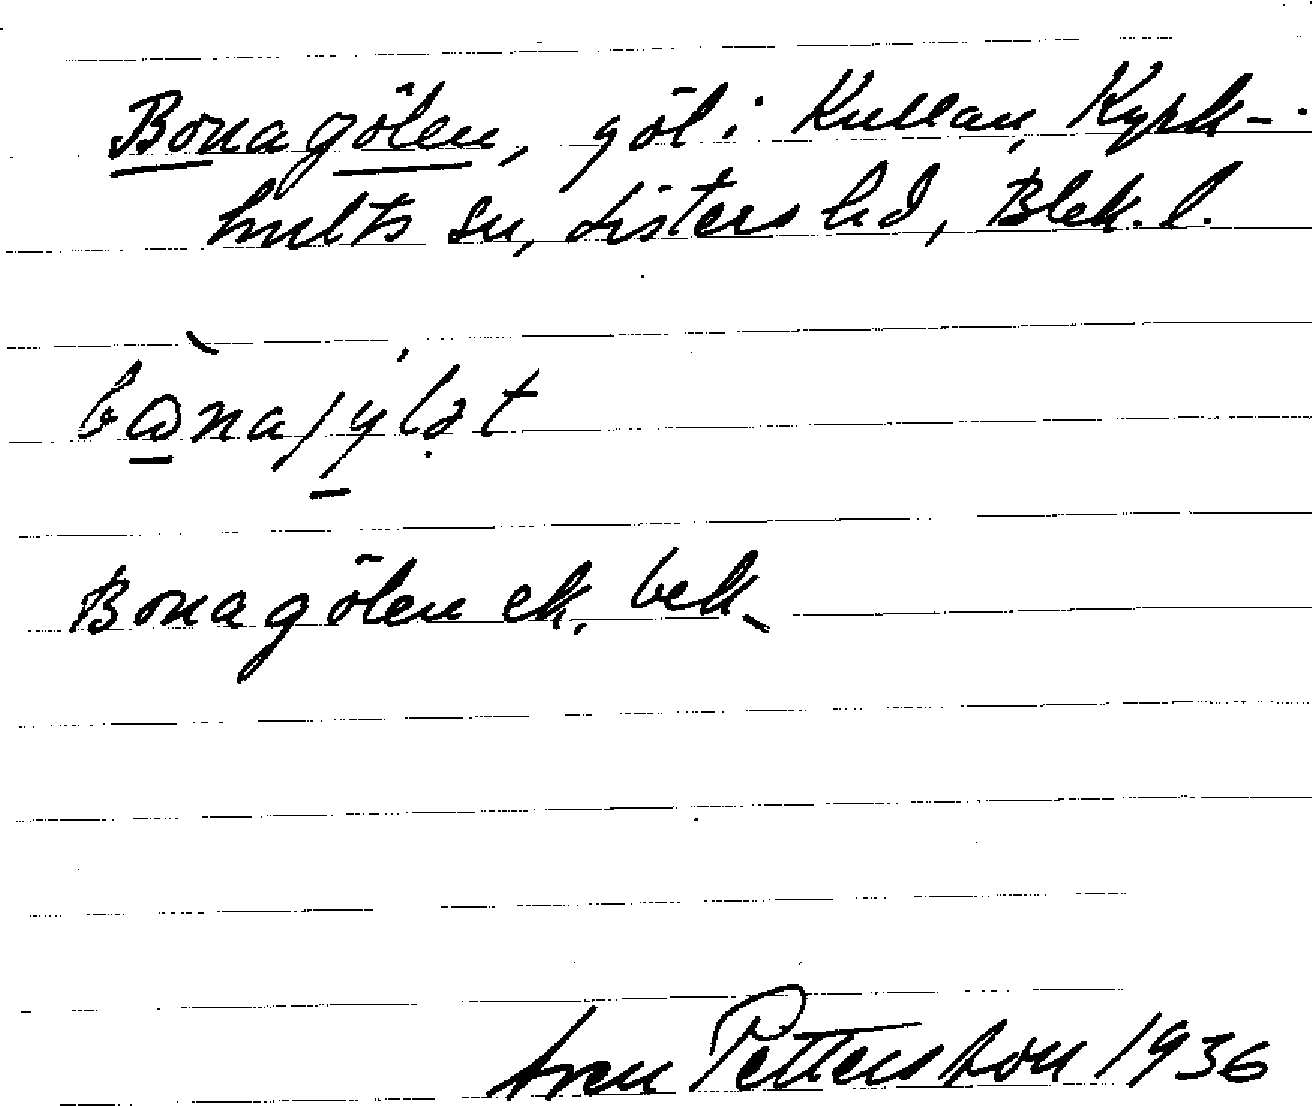 Bonagölen, göl i Kullan, Kyrk-
hults sn, Listers hd, Blek. l.
Bonagölen ek. bek.
Sven Pettersson 1936